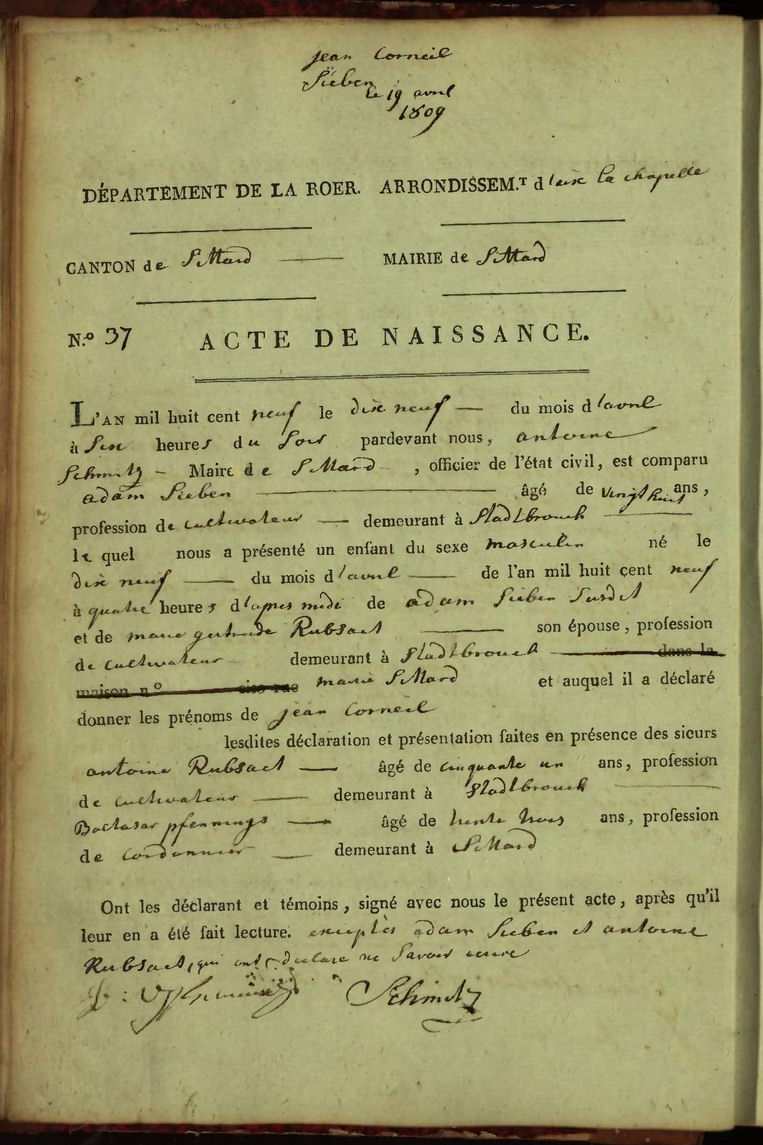 jean Corneil
Sieben
le 19 avril
1809
DÉPARTEMENT DE LA ROER. ARRONDISSEM.T d'aix la chapelle
CANTON de Sittard MAIRIE de Sittard
N.º 37 ACTE DE NAISSANCE.
L'AN mil huit cent neuf le dix neuf du mois d'avril
à Six heures du Soir pardevant nous, antoine
Schmitz Maire de Sittard, officier de l'état civil, est comparu
adam Sieben âgé de vingt huit ans,
profession de cultivateur demeurant à Stadtbrouch
le quel nous a présenté un enfant du sexe masculin né le
dix neuf du mois d'avril de l'an mil huit cent neuf
à quatre heures d'apres midi de adam Sieben Susdit
et de marie gertrude Rubsaet son épouse, profession
de cultivateur demeurant à Stadtbrouch dans la
maison n.º sise rue mairie Sittard et auquel il a déclaré
donner les prénoms de jean Corneil
lesdites déclaration et présentation faites en présence des sieurs
antoine Rubsaet âgé de cinquante un ans, profession
de cultivateur demeurant à Stadtbrouch
Baltasar pfennings âgé de trente trois ans, profession
de Cordonnier demeurant à Sittard
Ont les déclarant et témoins, signé avec nous le présent acte, après qu'il
leur en a été fait lecture. exceptés adam Sieben et antoine
Rubsaet, qui ont declaré ne Savoir ecrire
Schmitz